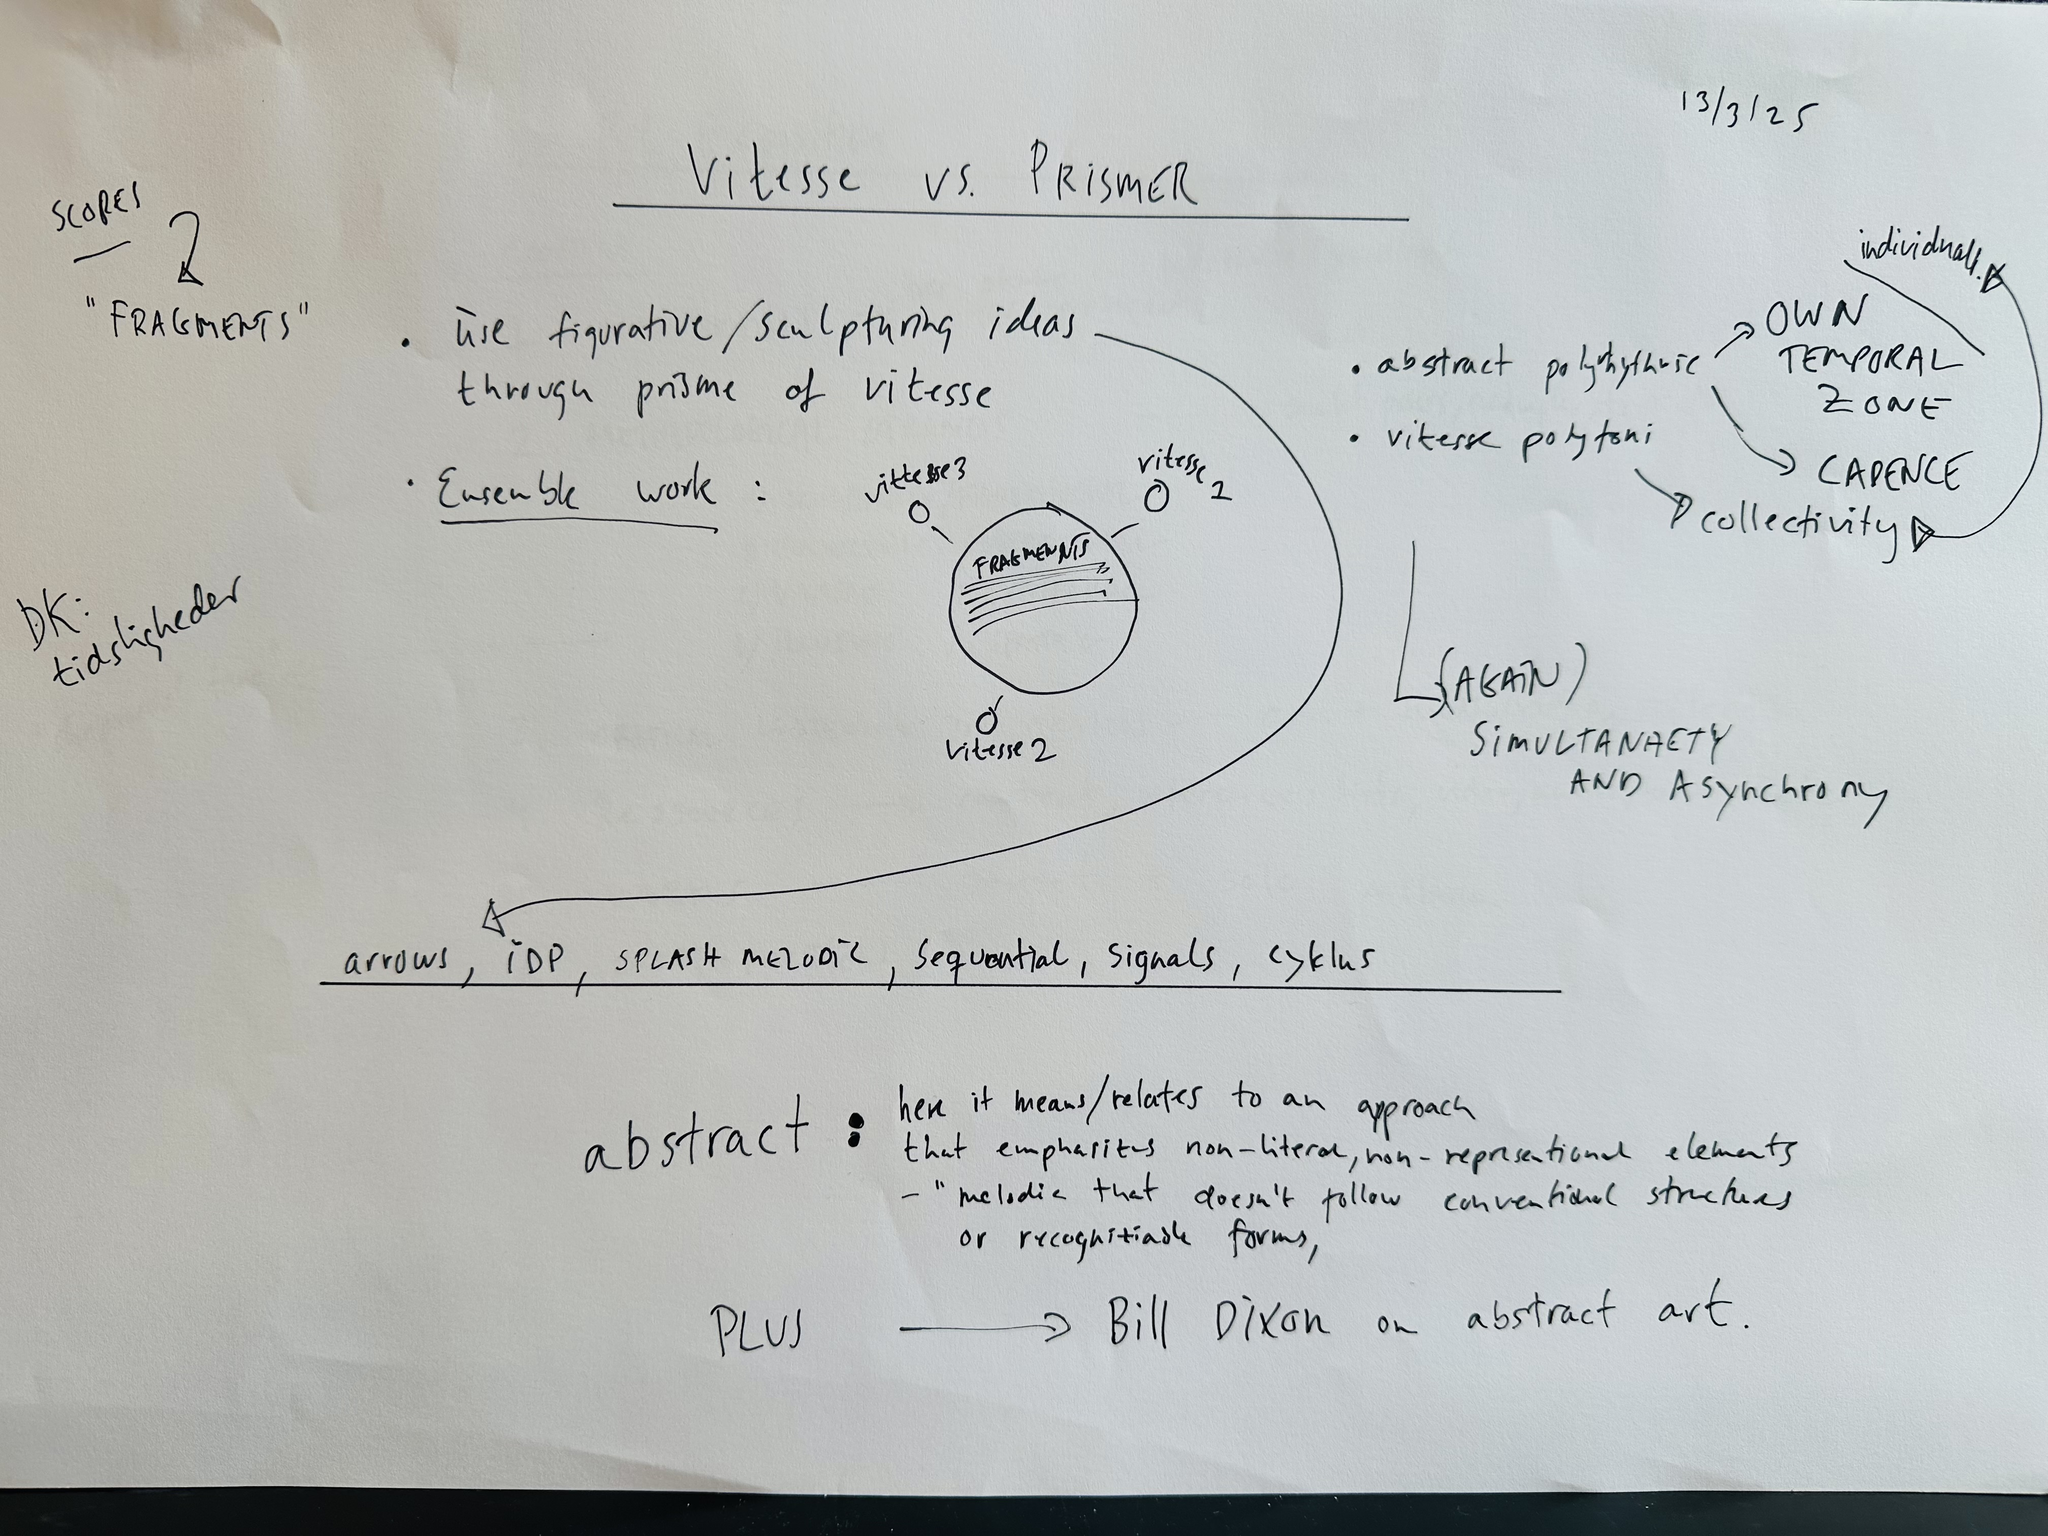 13/3/25
Vitesse vs. PRISMER
SCORES
"FRAGMENTS"
DK:
tidsligheder
• use figurative/sculpturing ideas
through prisme of vitesse
• Ensemble work :
vittesse3
vitesse 1
FRAGMENNTS
vitesse 2
individuals.
• abstract polyrhythmic
OWN
TEMPORAL
ZONE
• vitesse polyfoni
CADENCE
collectivity
(AGAIN)
SIMULTANAETY
AND Asynchrony
arrows, iDP, SPLASH MELODIC, Sequential, Signals, cyklus
abstract :
here it means/relates to an approach
that emphasizes non-literal, non-representional elements
- "melodic that doesn't follow conventional structures
or recognitiable forms,
PLUS → Bill Dixon on abstract art.